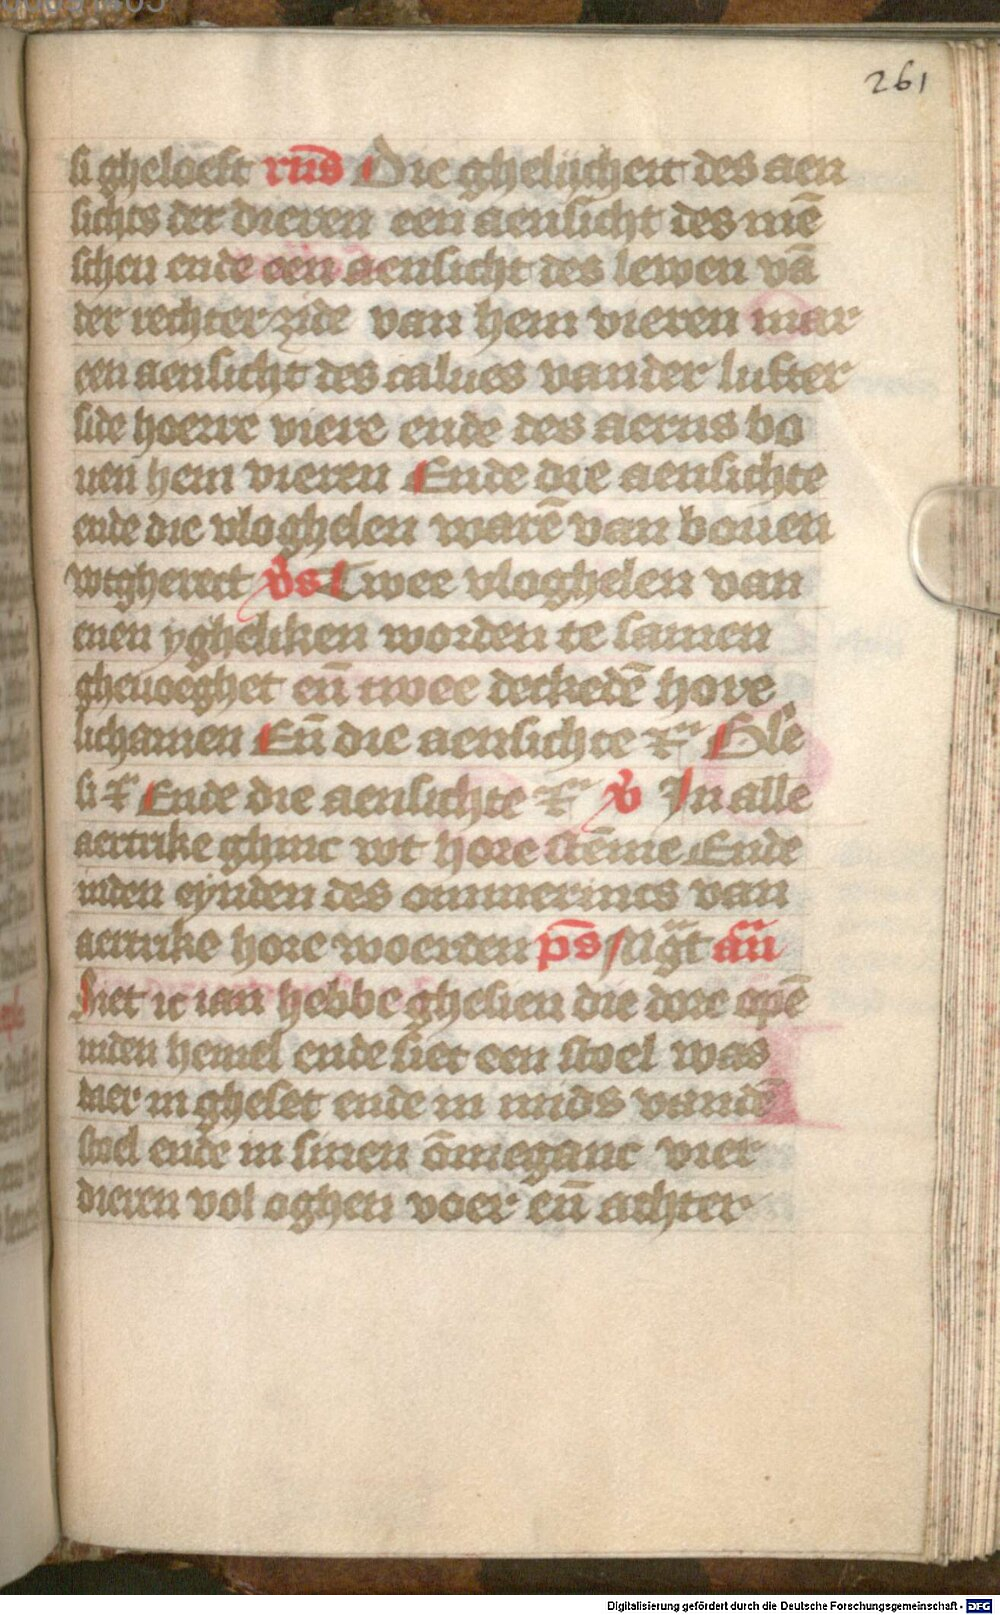 261
si gheloeft rn̄s Die ghelijcheit des aen
sichts der dieren een aensicht des mē
schen ende een aensicht des lewen vā
der rechter zide van hem vieren mar
een aensicht des calues vander lufter
side hoerre viere ende des aerns bo
uen hem vieren Ende die aensichte
ende die vloghelen warē van bouen
wtgherect v̓s Twee vloghelen van
enen ygheliken worden te samen
gheuoeghet en̄ twee deckedē hore
lichamen En̄ die aensichte Gle
si Ende die aensichte v̓ In alle
aertrike ghinc wt hore stēme Ende
inden eynden des ommerincs van
aertrike hore woerden p̄s an̄
Siet ic ian hebbe ghesien die dore opē
inden hemel ende siet een stoel was
daer in gheset ende in mids vandē
stoel ende in sinen ōmeganc vier
dieren vol oghen voer en̄ achter
Digitalisierung gefördert durch die Deutsche Forschungsgemeinschaft - DFG